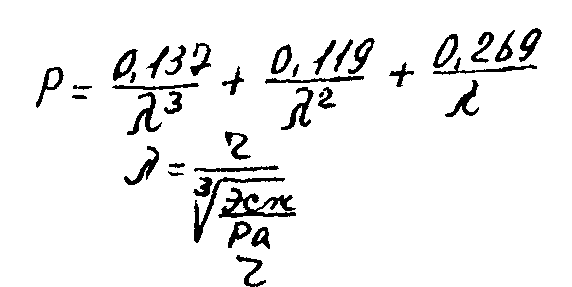 P = 0,137/λ³ + 0,119/λ² + 0,269/λ
λ = r/∛(Эсж/Pa)
r